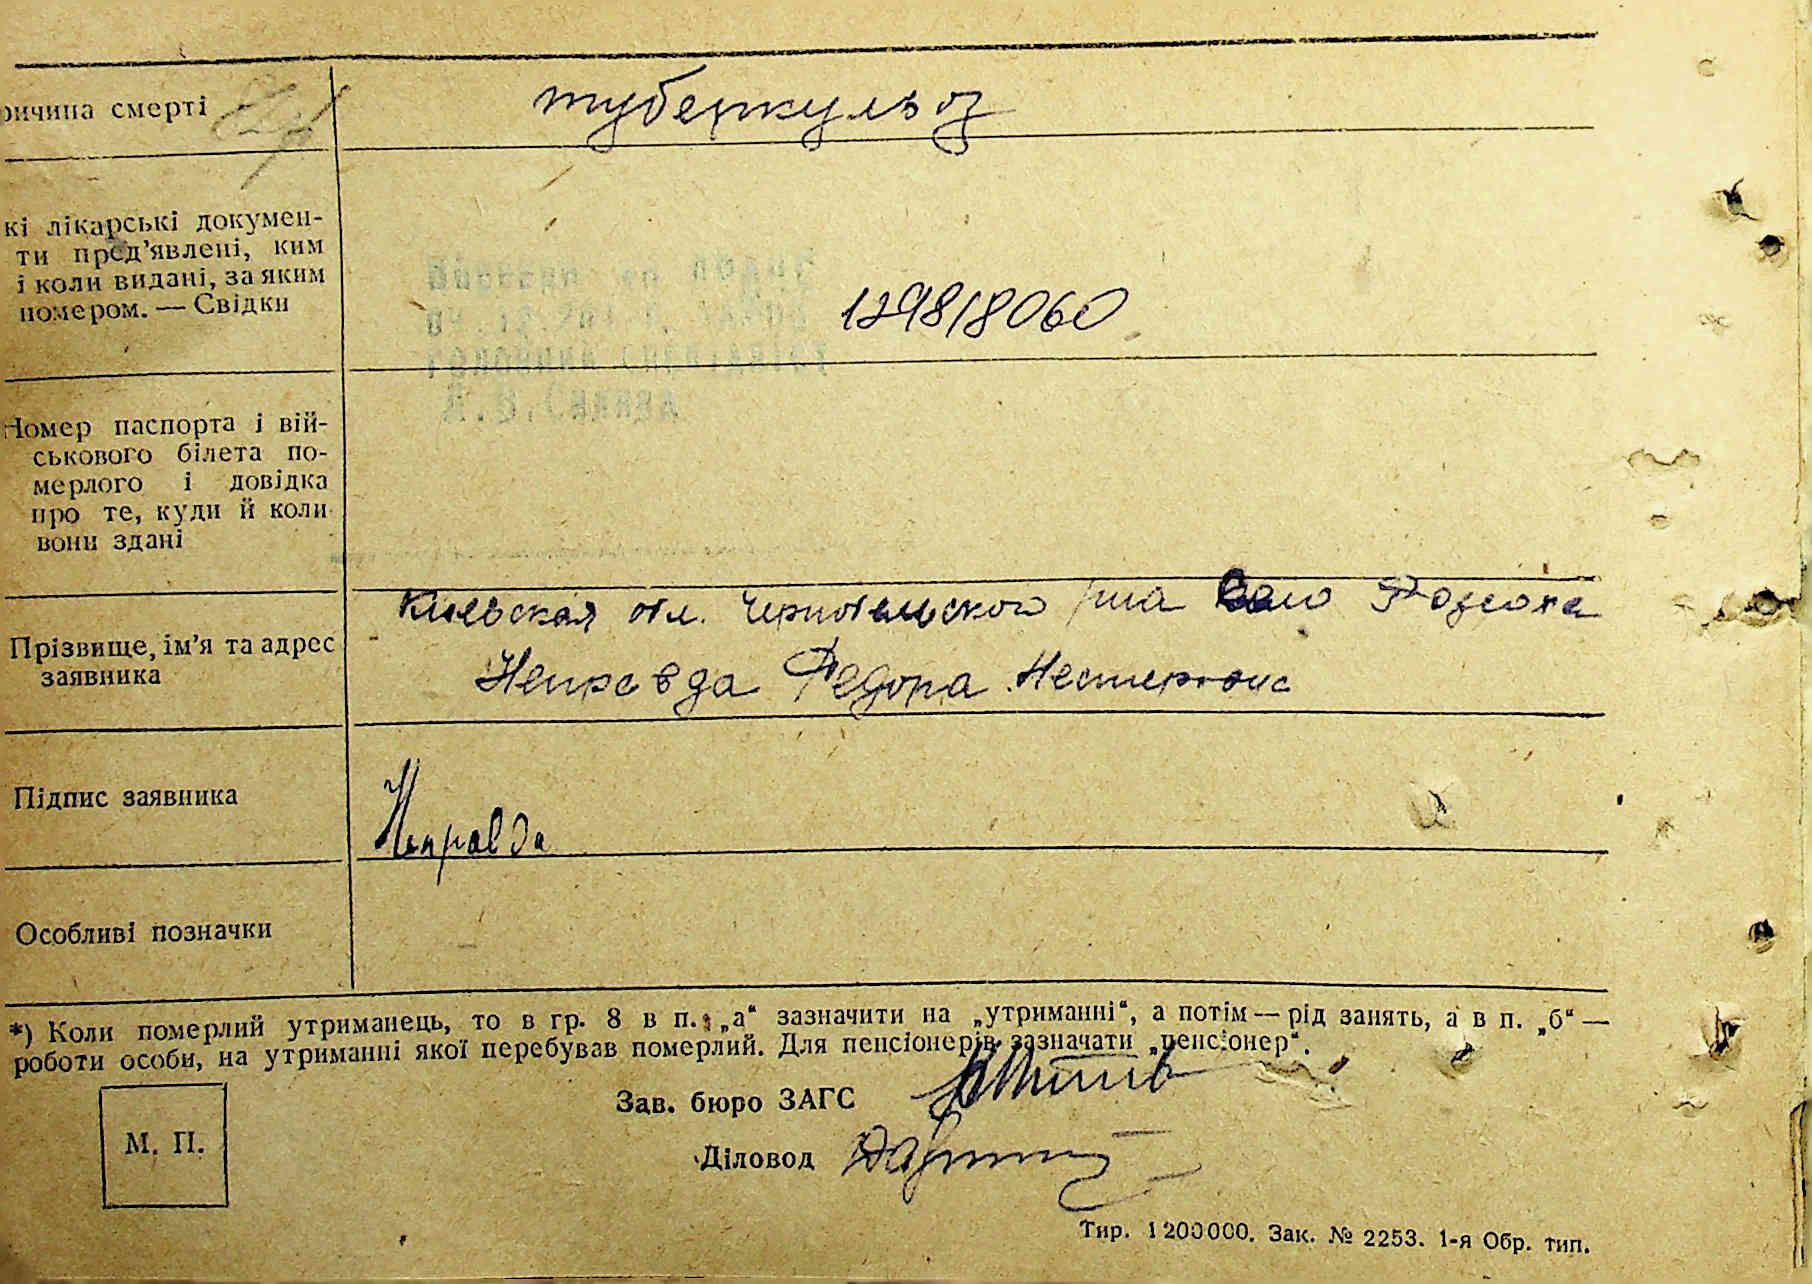 ричина смерті
туберкульоз
кі лікарські докумен-
ти пред'явлені, ким
і коли видані, за яким
номером. — Свідки
129818060
Номер паспорта і вій-
ськового білета по-
мерлого і довідка
про те, куди й коли
вони здані
Киевская обл. р-на село
Прізвище, ім'я та адрес
заявника
Неправда Федора
Підпис заявника
Неправда
Особливі позначки
*) Коли померлий утриманець, то в гр. 8 в п. „а“ зазначити на „утриманні“, а потім — рід занять, а в п. „б“ —
роботи особи, на утриманні якої перебував померлий. Для пенсіонерів зазначати „пенсіонер“.
Зав. бюро ЗАГС
М. П.
Діловод
Тир. 1200000. Зак. № 2253. 1-я Обр. тип.